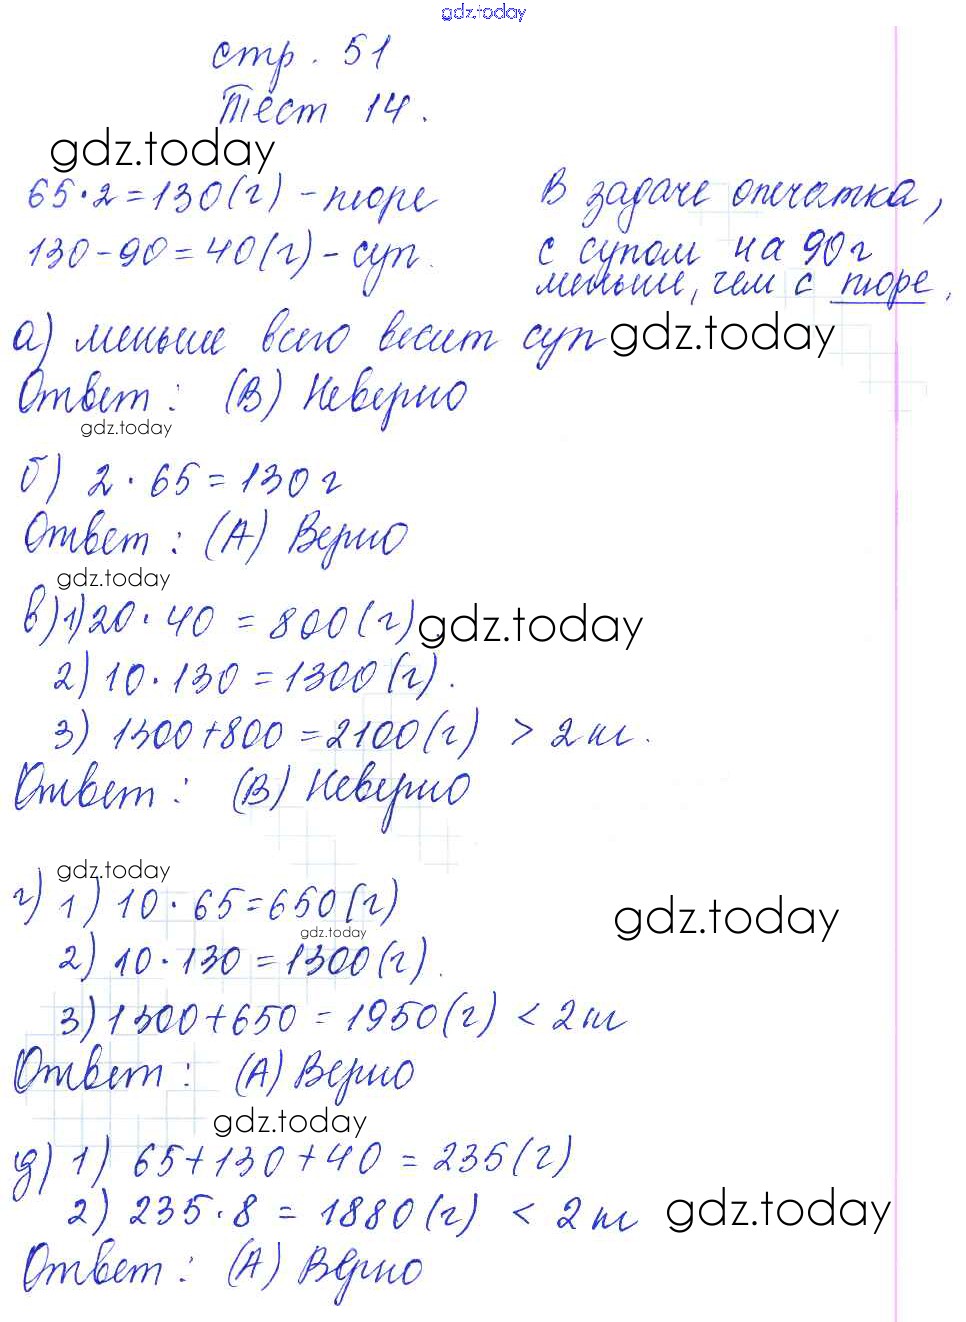 gdz.today
стр. 51
Тест 14.
gdz.today
65·2=130(г) - пюре
130-90=40(г) - суп.
В задаче опечатка,
с супом на 90г
меньше, чем с пюре.
а) меньше всего весит суп
gdz.today
Ответ: (В) Неверно
gdz.today
б) 2·65=130г
Ответ: (А) Верно
gdz.today
в) 1) 20·40 = 800(г)
gdz.today
2) 10·130 = 1300(г).
3) 1300+800 = 2100(г) > 2кг.
Ответ: (В) Неверно
gdz.today
г) 1) 10·65=650(г)
gdz.today
gdz.today
2) 10·130 = 1300(г).
3) 1300+650 = 1950(г) < 2кг
Ответ: (А) Верно
gdz.today
д) 1) 65+130+40 = 235(г)
2) 235·8 = 1880(г) < 2кг
gdz.today
Ответ: (А) Верно